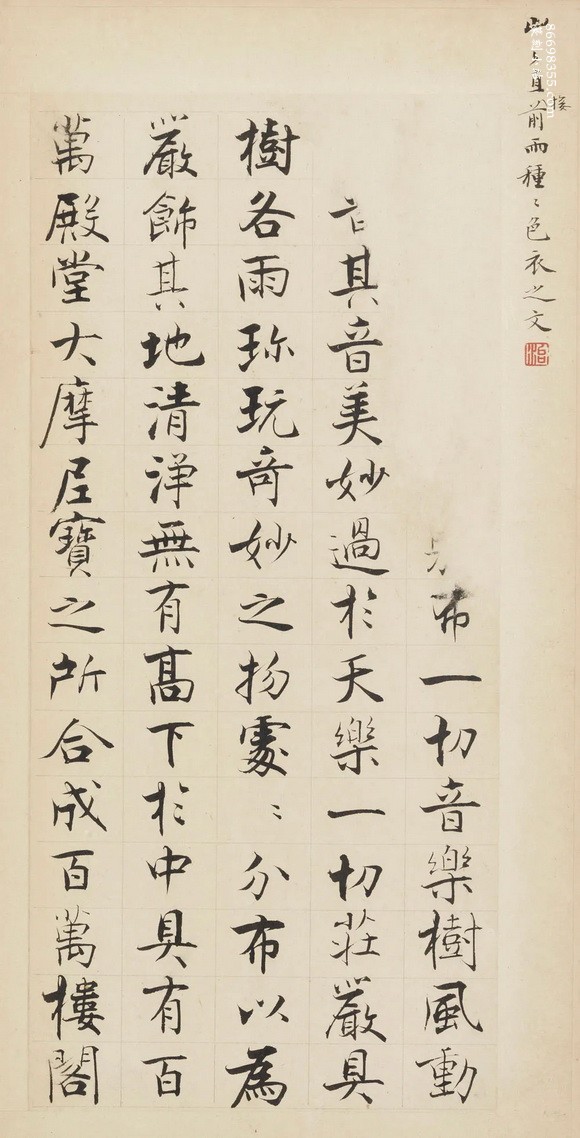 此直接前雨種〻色衣之文
布一切音樂樹風動
其音美妙過於天樂一切莊嚴具
樹各雨珎玩奇妙之物處〻分布以為
嚴飾其地清淨無有髙下於中具有百
萬殿堂大摩尼寶之所合成百萬樓閣
86698355.com